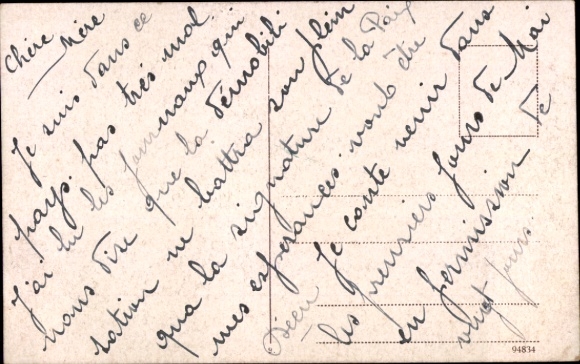 Chère Mère
Je suis dans ce
pays pas très mal
J'ai lu les journaux qui
nous dise que la démobili
sation ne battra son plein
qua la signature de la Paix
mes espérances vont être
Je conte venir dans
les premiers jours de Mai
en permission de
vingt jours
94834